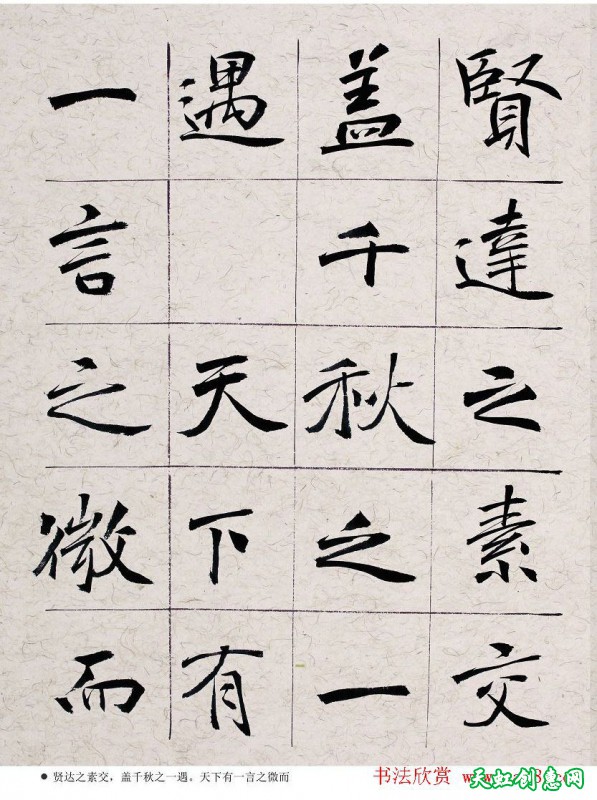 賢達之素交
盖千秋之一
遇 天下有
一言之微而
● 贤达之素交，盖千秋之一遇。天下有一言之微而
书法欣赏
天虹创意网